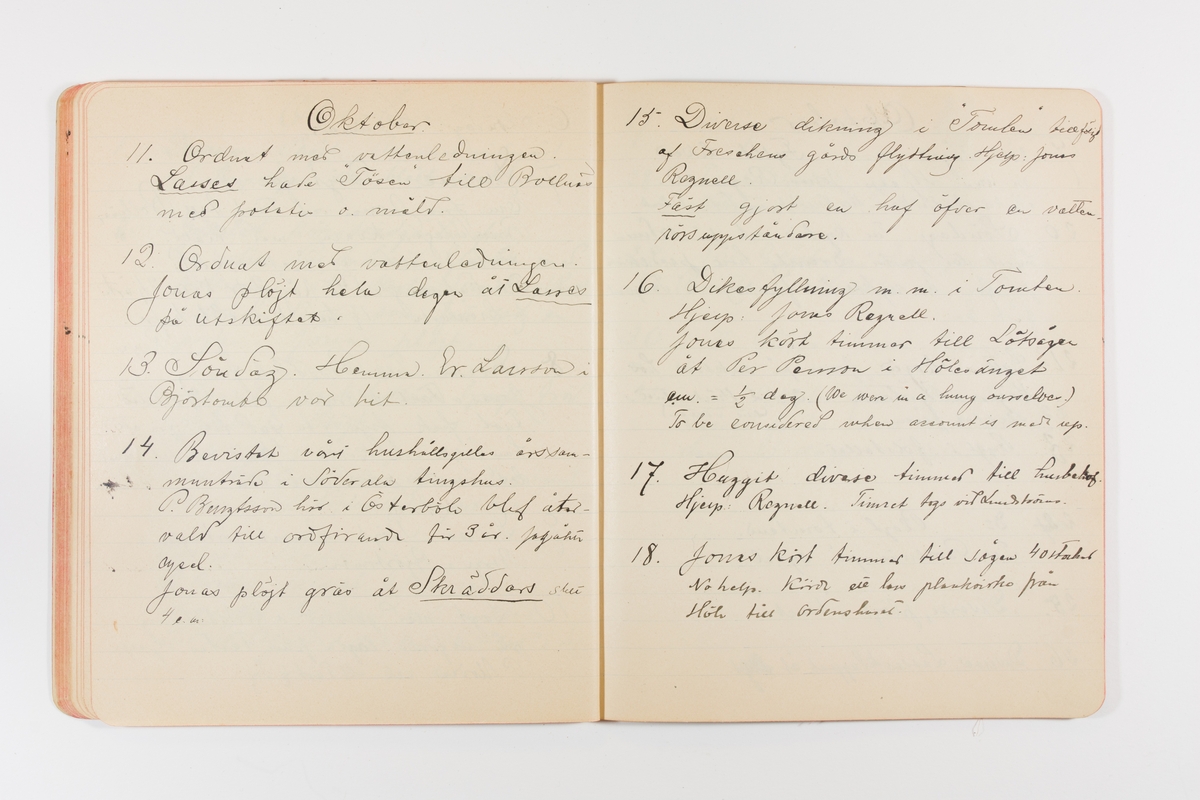 Oktober.
11. Ordnat med vattenledningen.
Lasses hade "Tösen" till Bollnäs
med potatis o. mäld.
12. Ordnat med vattenledningen.
Jonas plöjt hela dagen åt Lasses
på Utskiftet.
13. Söndag. Hemma. Er. Larsson i
Björtomta var hit.
14. Bevistat vårt hushållsgilles årssam-
manträde i Söderala tingshus.
P. Bengtsson här i Österböle blef åter-
vald till ordförande för 3 år.
Jonas plöjt gräs åt Skräddars
4 e.m.
15. Diverse dikning i "Tomten" till följd
af Freschens gårds flyttning Hjelp: Jonas
Regnell.
Fäst gjort en huf öfver en vatten-
rörsuppståndare.
16. Dikesfyllning m.m. i Tomten.
Hjelp: Jonas Regnell.
Jonas kört timmer till Lötsågen
åt Per Persson i Hölesänget
em. = ½ dag. (We were in a hurry ourselves)
To be considered when account is made up.
17. Huggit diverse timmer till husbehof.
Hjelp: Regnell. Timret togs vid Lundströms.
18. Jonas kört timmer till sågen 40 stockar
No help. Körde ett lass plankvirke från
Höle till Ordenshuset.